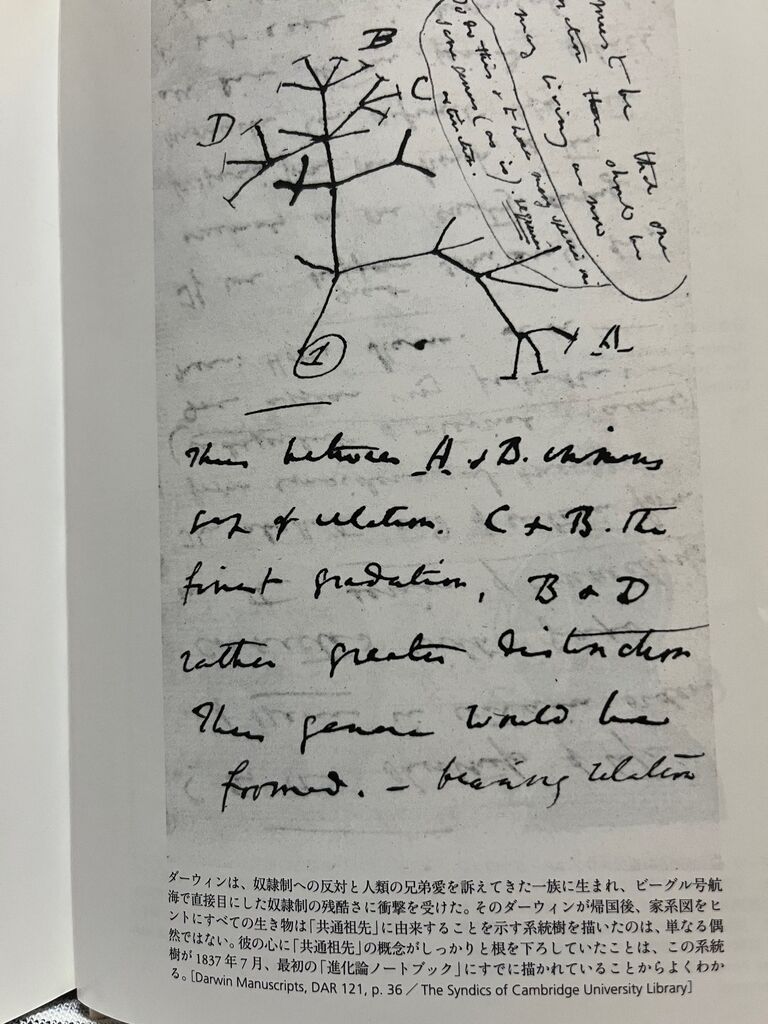 must be that one
then should be
living as now
To do this & to have many species in
same genus (as is). requires
extinction.
B
C
D
A
1
Thus between A & B. immens
gap of relation. C & B. The
finest gradation, B & D
rather greater distinction
Thus genera would be
formed. — bearing relation
ダーウィンは、奴隷制への反対と人類の兄弟愛を訴えてきた一族に生まれ、ビーグル号航
海で直接目にした奴隷制の残酷さに衝撃を受けた。そのダーウィンが帰国後、家系図をヒ
ントにすべての生き物は「共通祖先」に由来することを示す系統樹を描いたのは、単なる偶
然ではない。彼の心に「共通祖先」の概念がしっかりと根を下ろしていたことは、この系統
樹が1837年7月、最初の「進化論ノートブック」にすでに描かれていることからよくわか
る。[Darwin Manuscripts, DAR 121, p. 36／The Syndics of Cambridge University Library]